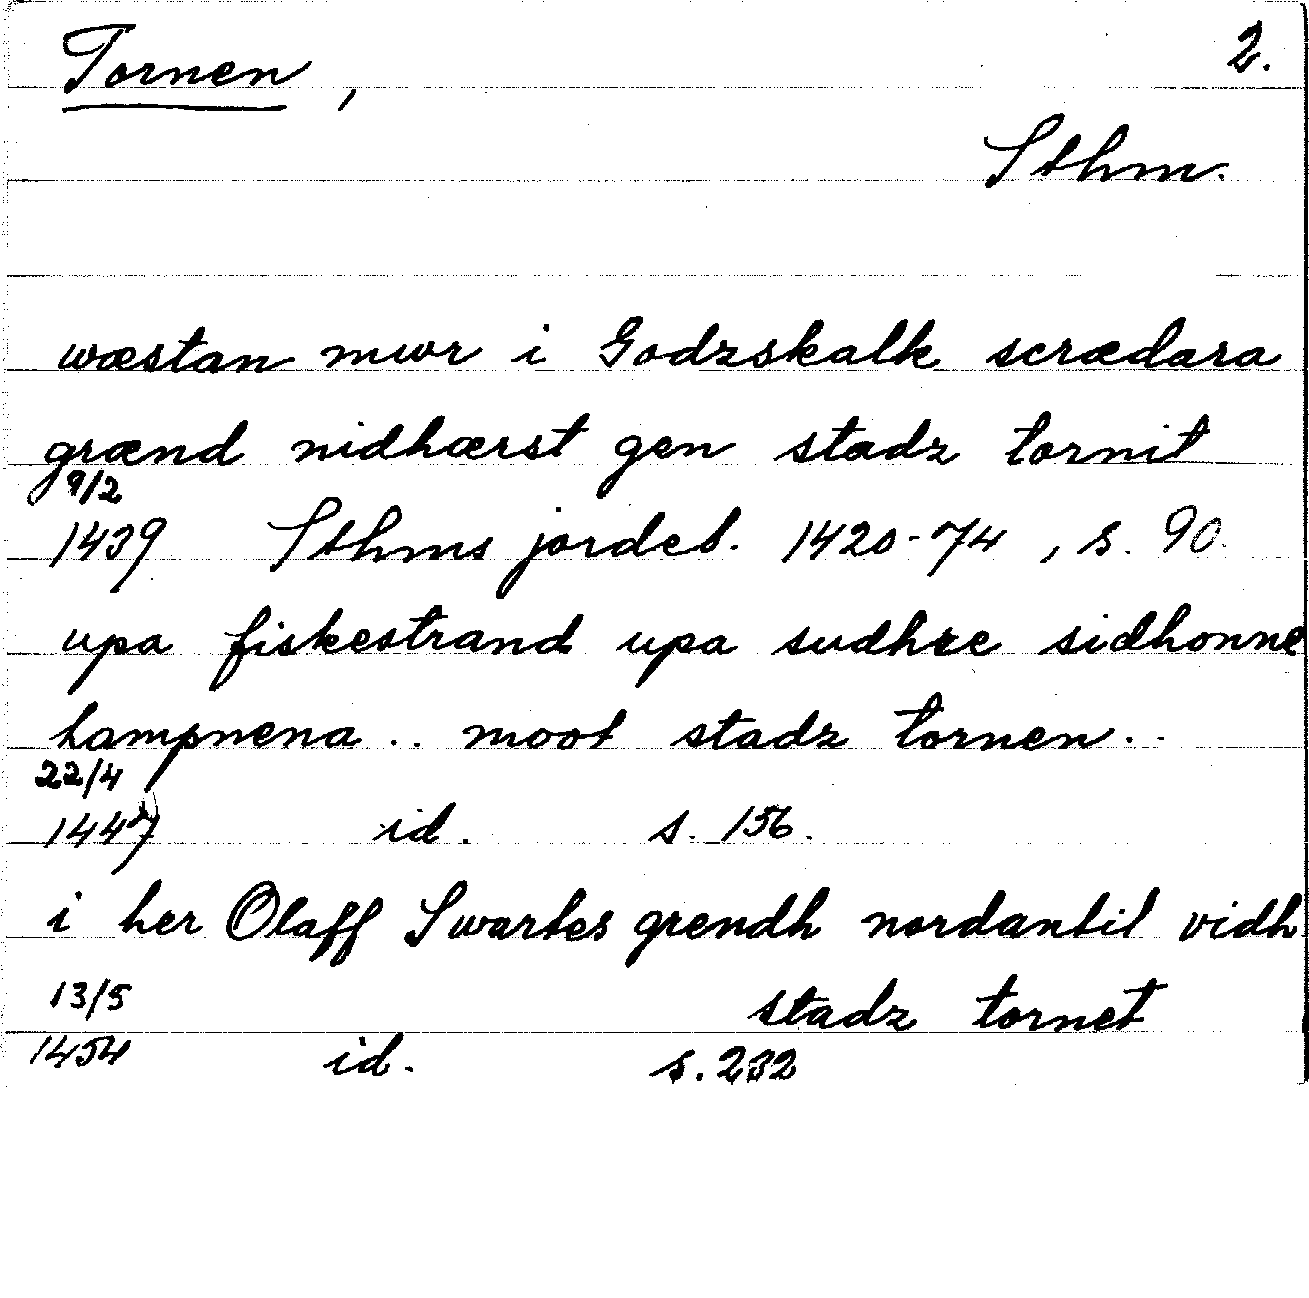 Tornen, 2.
Sthm.
wæstan mwr i Godzskalk scrædara
grænd nidhærst gen stadz tornit
9/2
1439 Sthms jordeb. 1420-74, s. 90.
upa fiskestrand upa sudhre sidhonne
hampnena .. moot stadz tornen..
22/4
1447 id. s. 156.
i her Olaff Swartes grendh nordantil vidh
13/5 stadz tornet
1454 id. s. 232